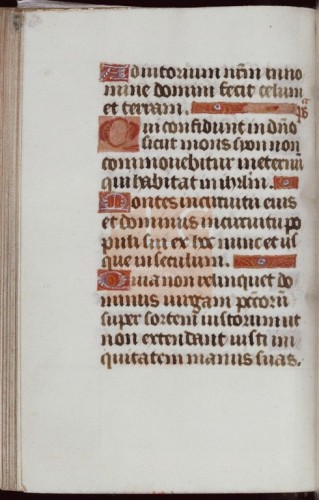 Adiutorium nr̃m in no
mine domini fecit celum
et terram.
Qui confidunt in dño
sicut mons syon non
commouebitur in eternũ
qui habitat in ihrlm.
Montes in circuitu eius
et dominus in circuitu po
puli sui ex hoc nunc et us
que in seculum.
Quia non relinquet do
minus uirgam pctorũ
super sortem iustorum ut
non extendant iusti ini
quitatem manus suas.